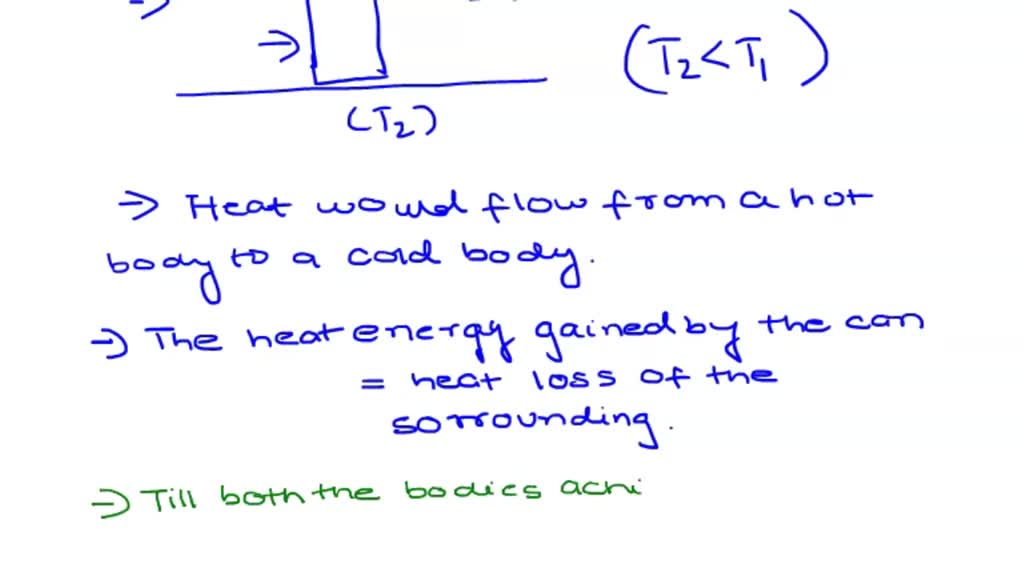 (T2 < T1)
(T2)
→ Heat would flow from a hot
body to a cold body.
→ The heat energy gained by the can
= heat loss of the
sorrounding.
→ Till both the bodies achi